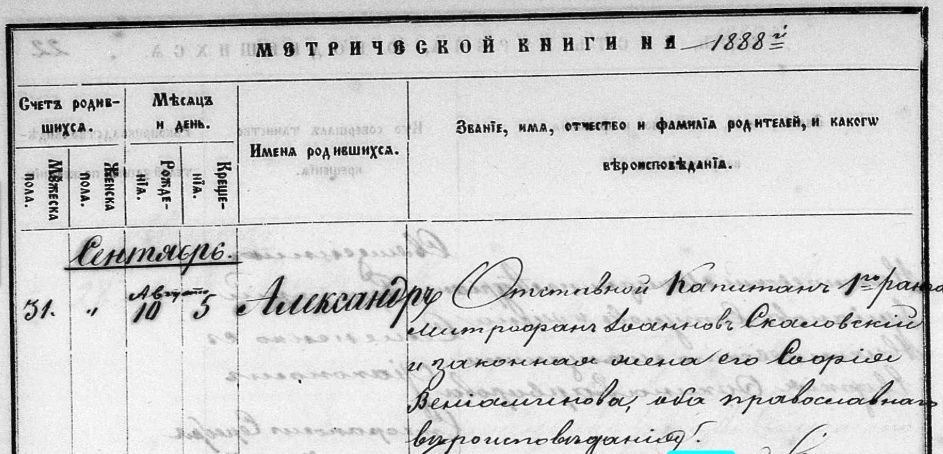 МЕТРИЧЕСКОЙ КНИГИ НА 1888й
Счетъ родившихся.
Мѣсяцъ и день.
Имена родившихся.
Званіе, имя, отчество и фамилія родителей, и какогѡ вѣроисповѣданія.
Мꙋжеска пола.
Женска пола.
Рожденія.
Крещенія.
Сентябрь.
31. „ Августа 10 5 Александръ Отставной Капитанъ 1го ранга
Митрофанъ Іоанновъ Скаловскій
и законная жена его Софія
Веніаминова, оба православнаго
вѣроисповѣданія.